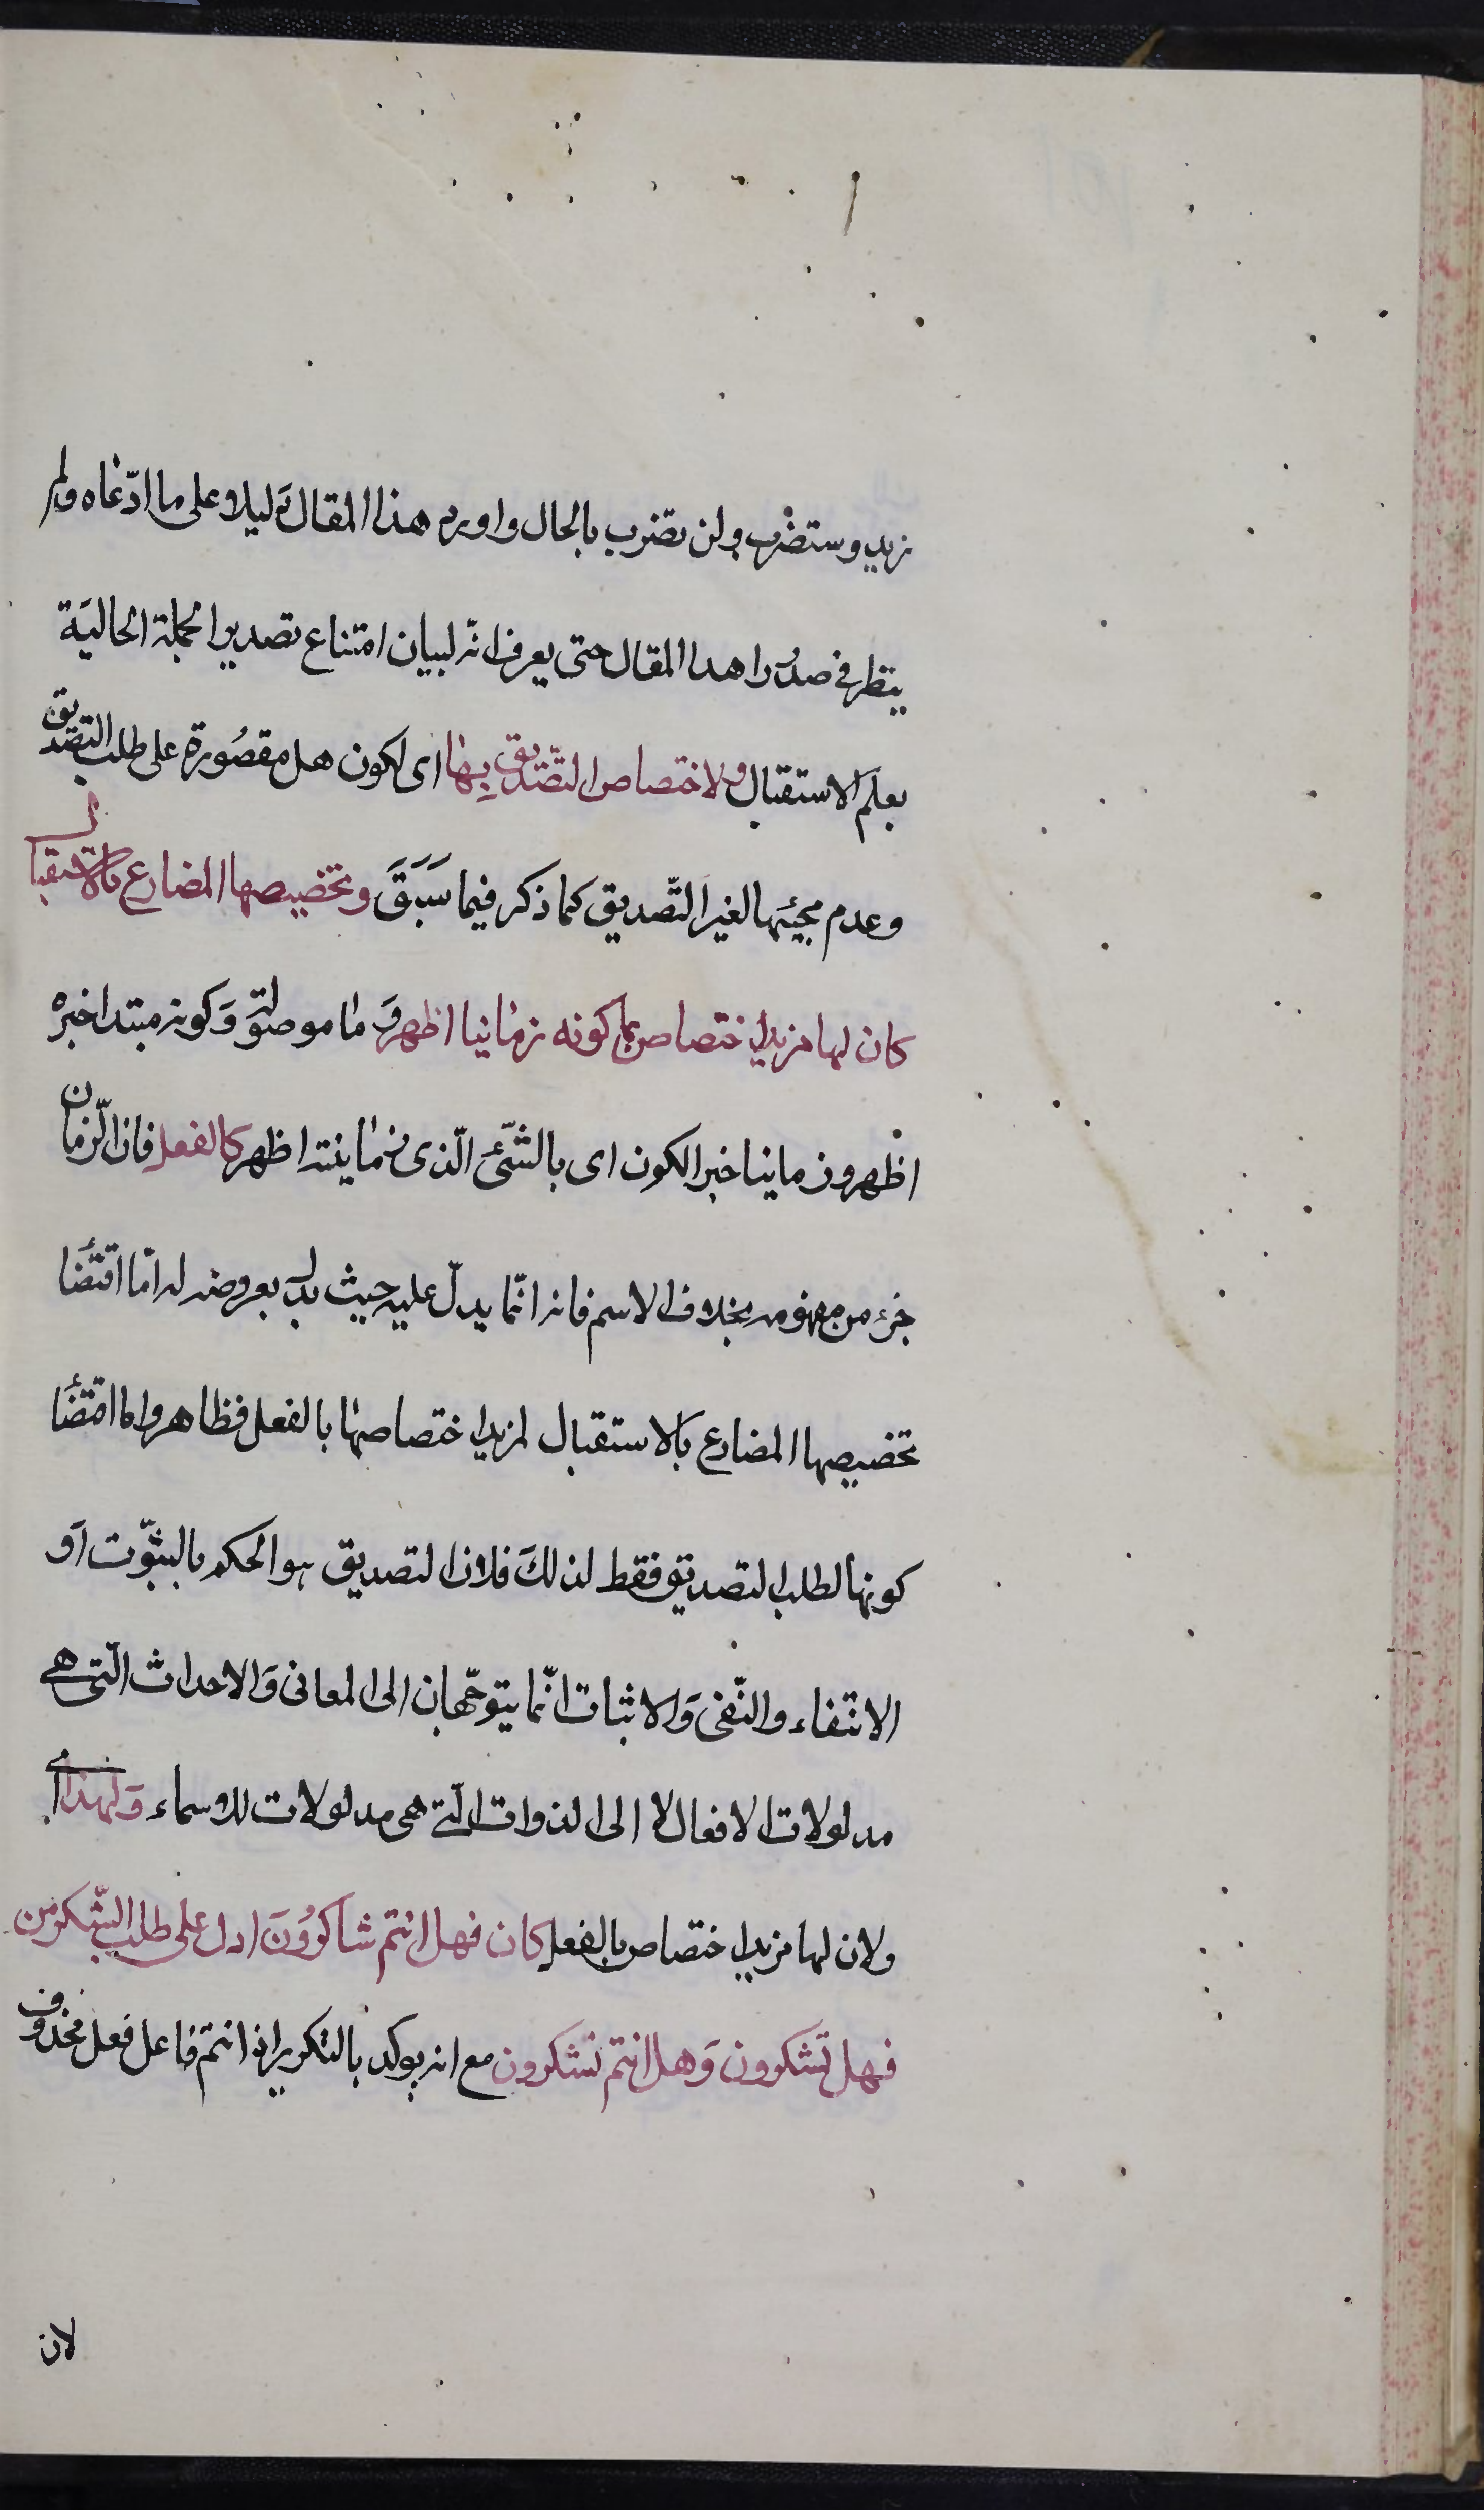 زيد وستضرب ولن تضرب بالحال واورد هذا المقال دليلا على ما ادّعاه ولم
ينظر في صدر هذا المقال حتى يعرف انّه لبيان امتناع تصدير الجملة الحاليَة
بعلم الاستقبال ولاختصاص التّصديق بِها اى لكون هل مقصُورة على طلب التصديق
وعدم مجيئها لغير التّصديق كما ذكر فيما سَبَقَ وتخصيصها المضارع بالاستقبال
كان لها مزيد اختصاص بما كونه زمانيا اظهر وَ ما موصولة وَكونه مبتدا خبره
اظهر وزمانيا خبر الكون اى بالشّئ الّذى زمانيته اظهر كالفعل فان الزّمان
جزء من مفهومه بخلاف الاسم فانه انّما يدلّ عليه حيث يدل بعروضه له امّا اقتضَا
تخصيصها المضارع بالاستقبال لمزيد اختصاصها بالفعل فظاهر واما اقتضَا
كونها لطلب التصديق فقط لذلكَ فلان التصديق هو الحكم بالثبّوت اَو
الانتفاء والنّفى وَالاثبات انّما يتوجّهان الى المعانى وَالاحداث الّتى هى
مدلولات الافعال لا الى الذوات الّتى هى مدلولات للاسماء وَلهذا اى
ولان لها مزيد اختصاص بالفعل كان فهل انتم شاكرُونَ ادل على طلب الشّكر من
فهل تشكرون وَهل انتم تشكرون مع انه يوكد بالتكرير اذ انتم فاعل فعل محذوف
لان